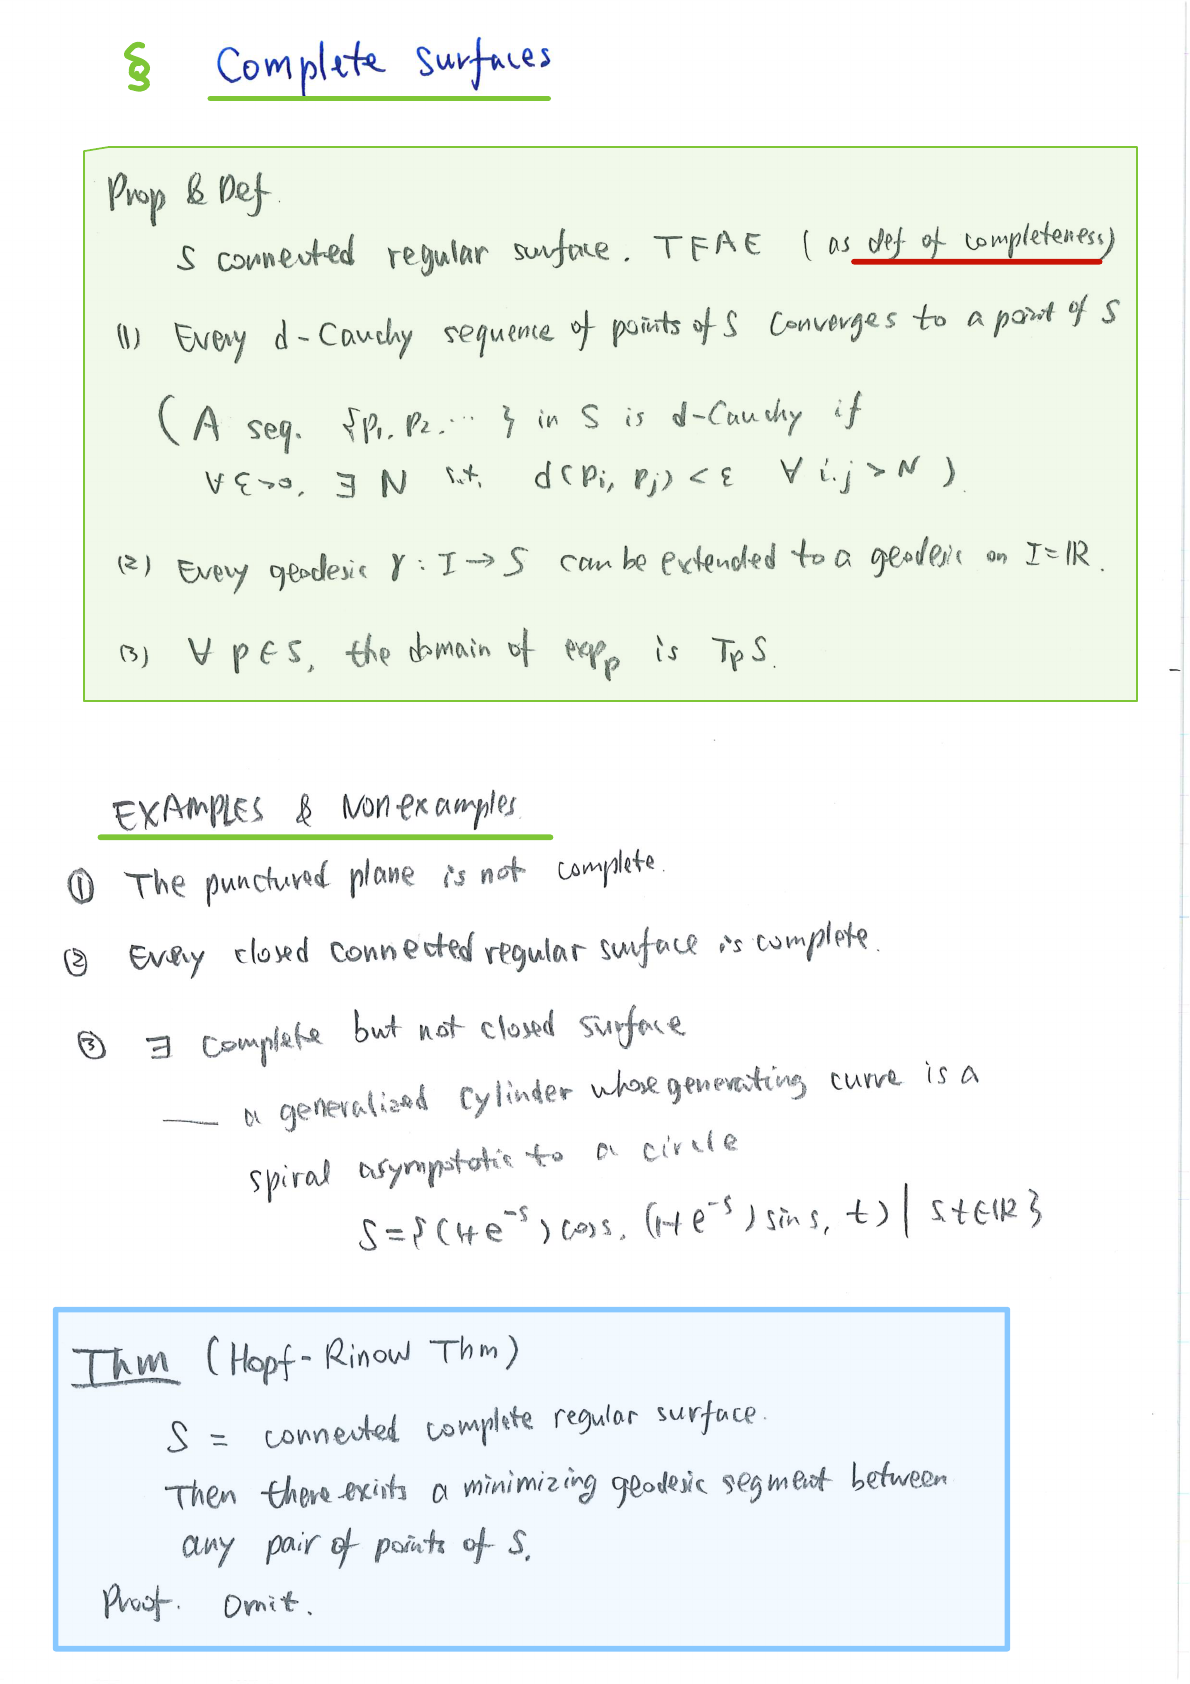 § Complete surfaces
Prop & Def.
S connected regular surface. TFAE (as def of completeness)
(1) Every d-Cauchy sequence of points of S converges to a point of S
(A seq. {p₁, p₂, ⋯ } in S is d-Cauchy if
∀ε>0, ∃ N s.t. d(pᵢ, pⱼ) < ε ∀ i,j > N ).
(2) Every geodesic γ : I → S can be extended to a geodesic on I = ℝ.
(3) ∀ p ∈ S, the domain of expₚ is TₚS.
EXAMPLES & Nonexamples.
① The punctured plane is not complete.
② Every closed connected regular surface is complete.
③ ∃ complete but not closed surface
— a generalized cylinder whose generating curve is a
spiral asymptotic to a circle
S = {(1+e⁻ˢ) cos s, (1+e⁻ˢ) sin s, t) | s,t ∈ ℝ }
Thm (Hopf-Rinow Thm)
S = connected complete regular surface.
Then there exists a minimizing geodesic segment between
any pair of points of S.
Proof. Omit.